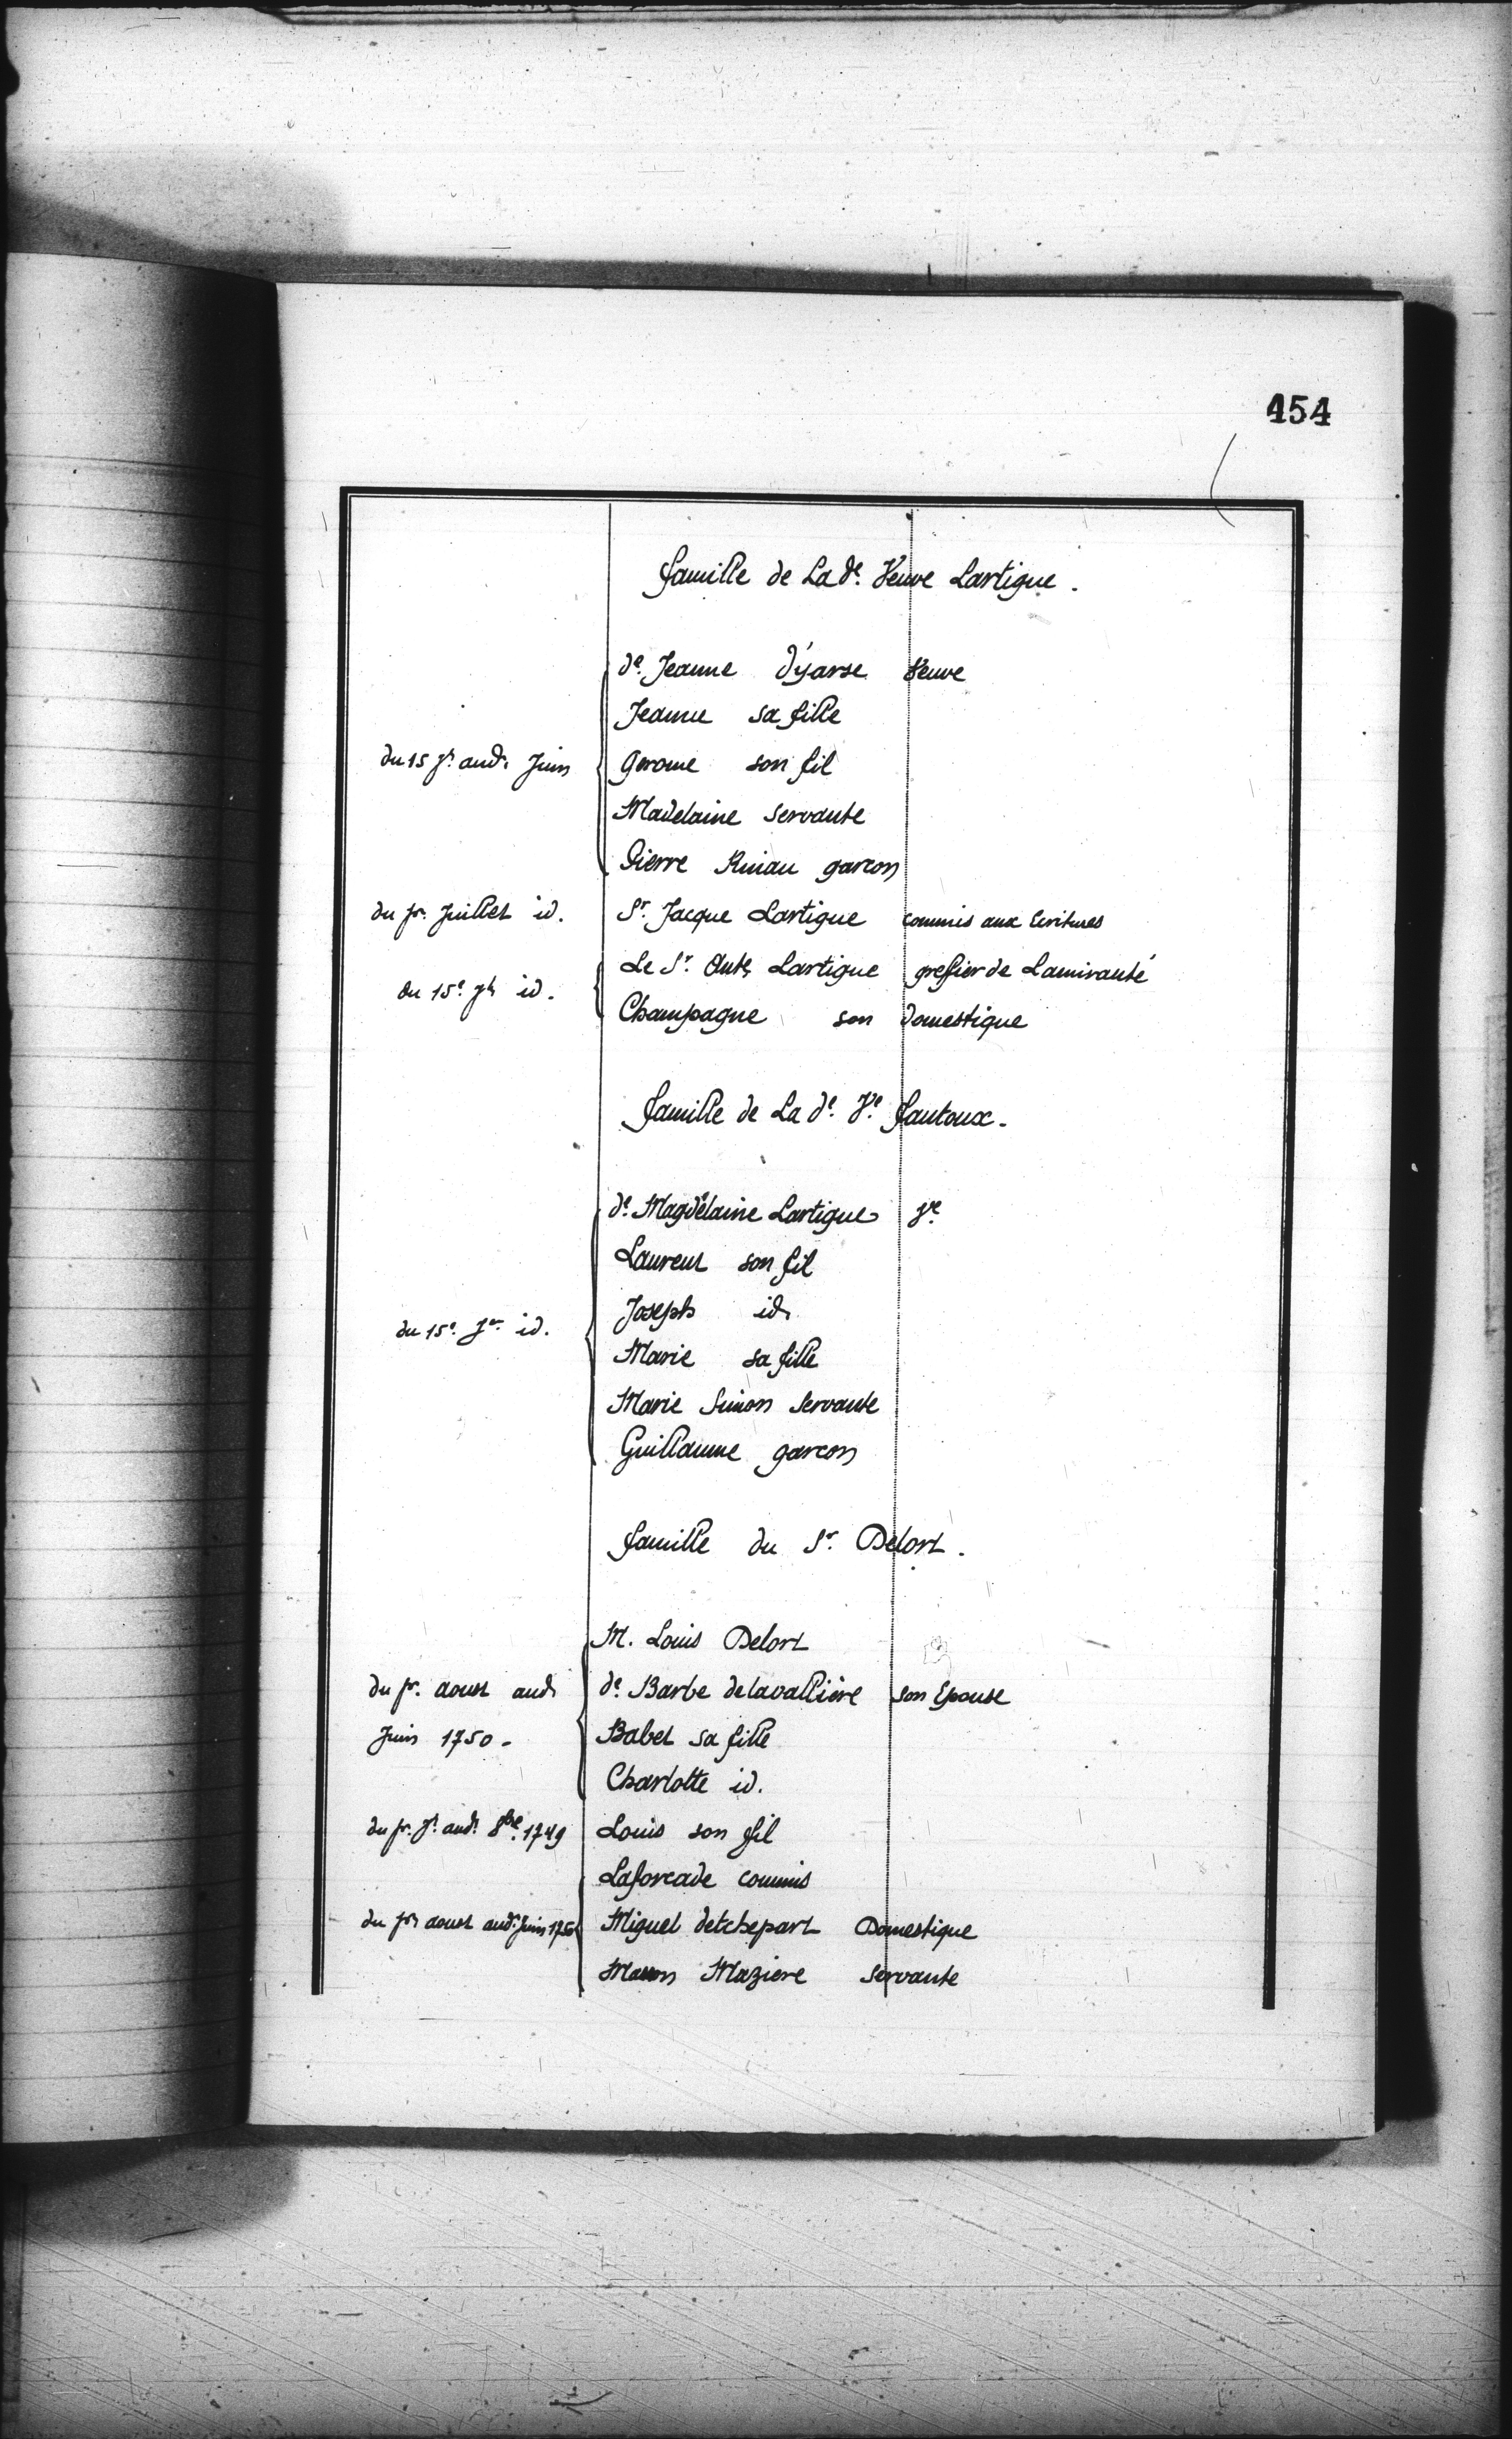 454
famille de La de. Veuve Lartigue.
de. Jeanne dÿarse Veuve
Jeanne sa fille
du 15 jr. aud. Juin Gerome son fil
Madelaine servante
Pierre Ruiau garcon
du pr. Juillet id. Sr. Jacque Lartigue commis aux Ecritures
Le Sr. Lartigue greffier de Lamirauté
du 15e id. Champagne son domestique
famille de La de. Ve. fautoux.
de. Magdelaine Lartigue Ve.
Laurent son fil
Joseph id.
du 15e. jer id. Marie sa fille
Marie Simon Servante
Guillaume garcon
famille du Sr. Delort.
M. Louis Delort
du pr. aoust aud. de. Barbe delavallière son Epouse
Juin 1750. Babet sa fille
Charlotte id.
du pr. jr. aud. 8bre. 1749 Louis son fil
Laforcade commis
du pr. aoust aud. Juin 1750 Miguel detchepart Domestique
Manon Maziere servante